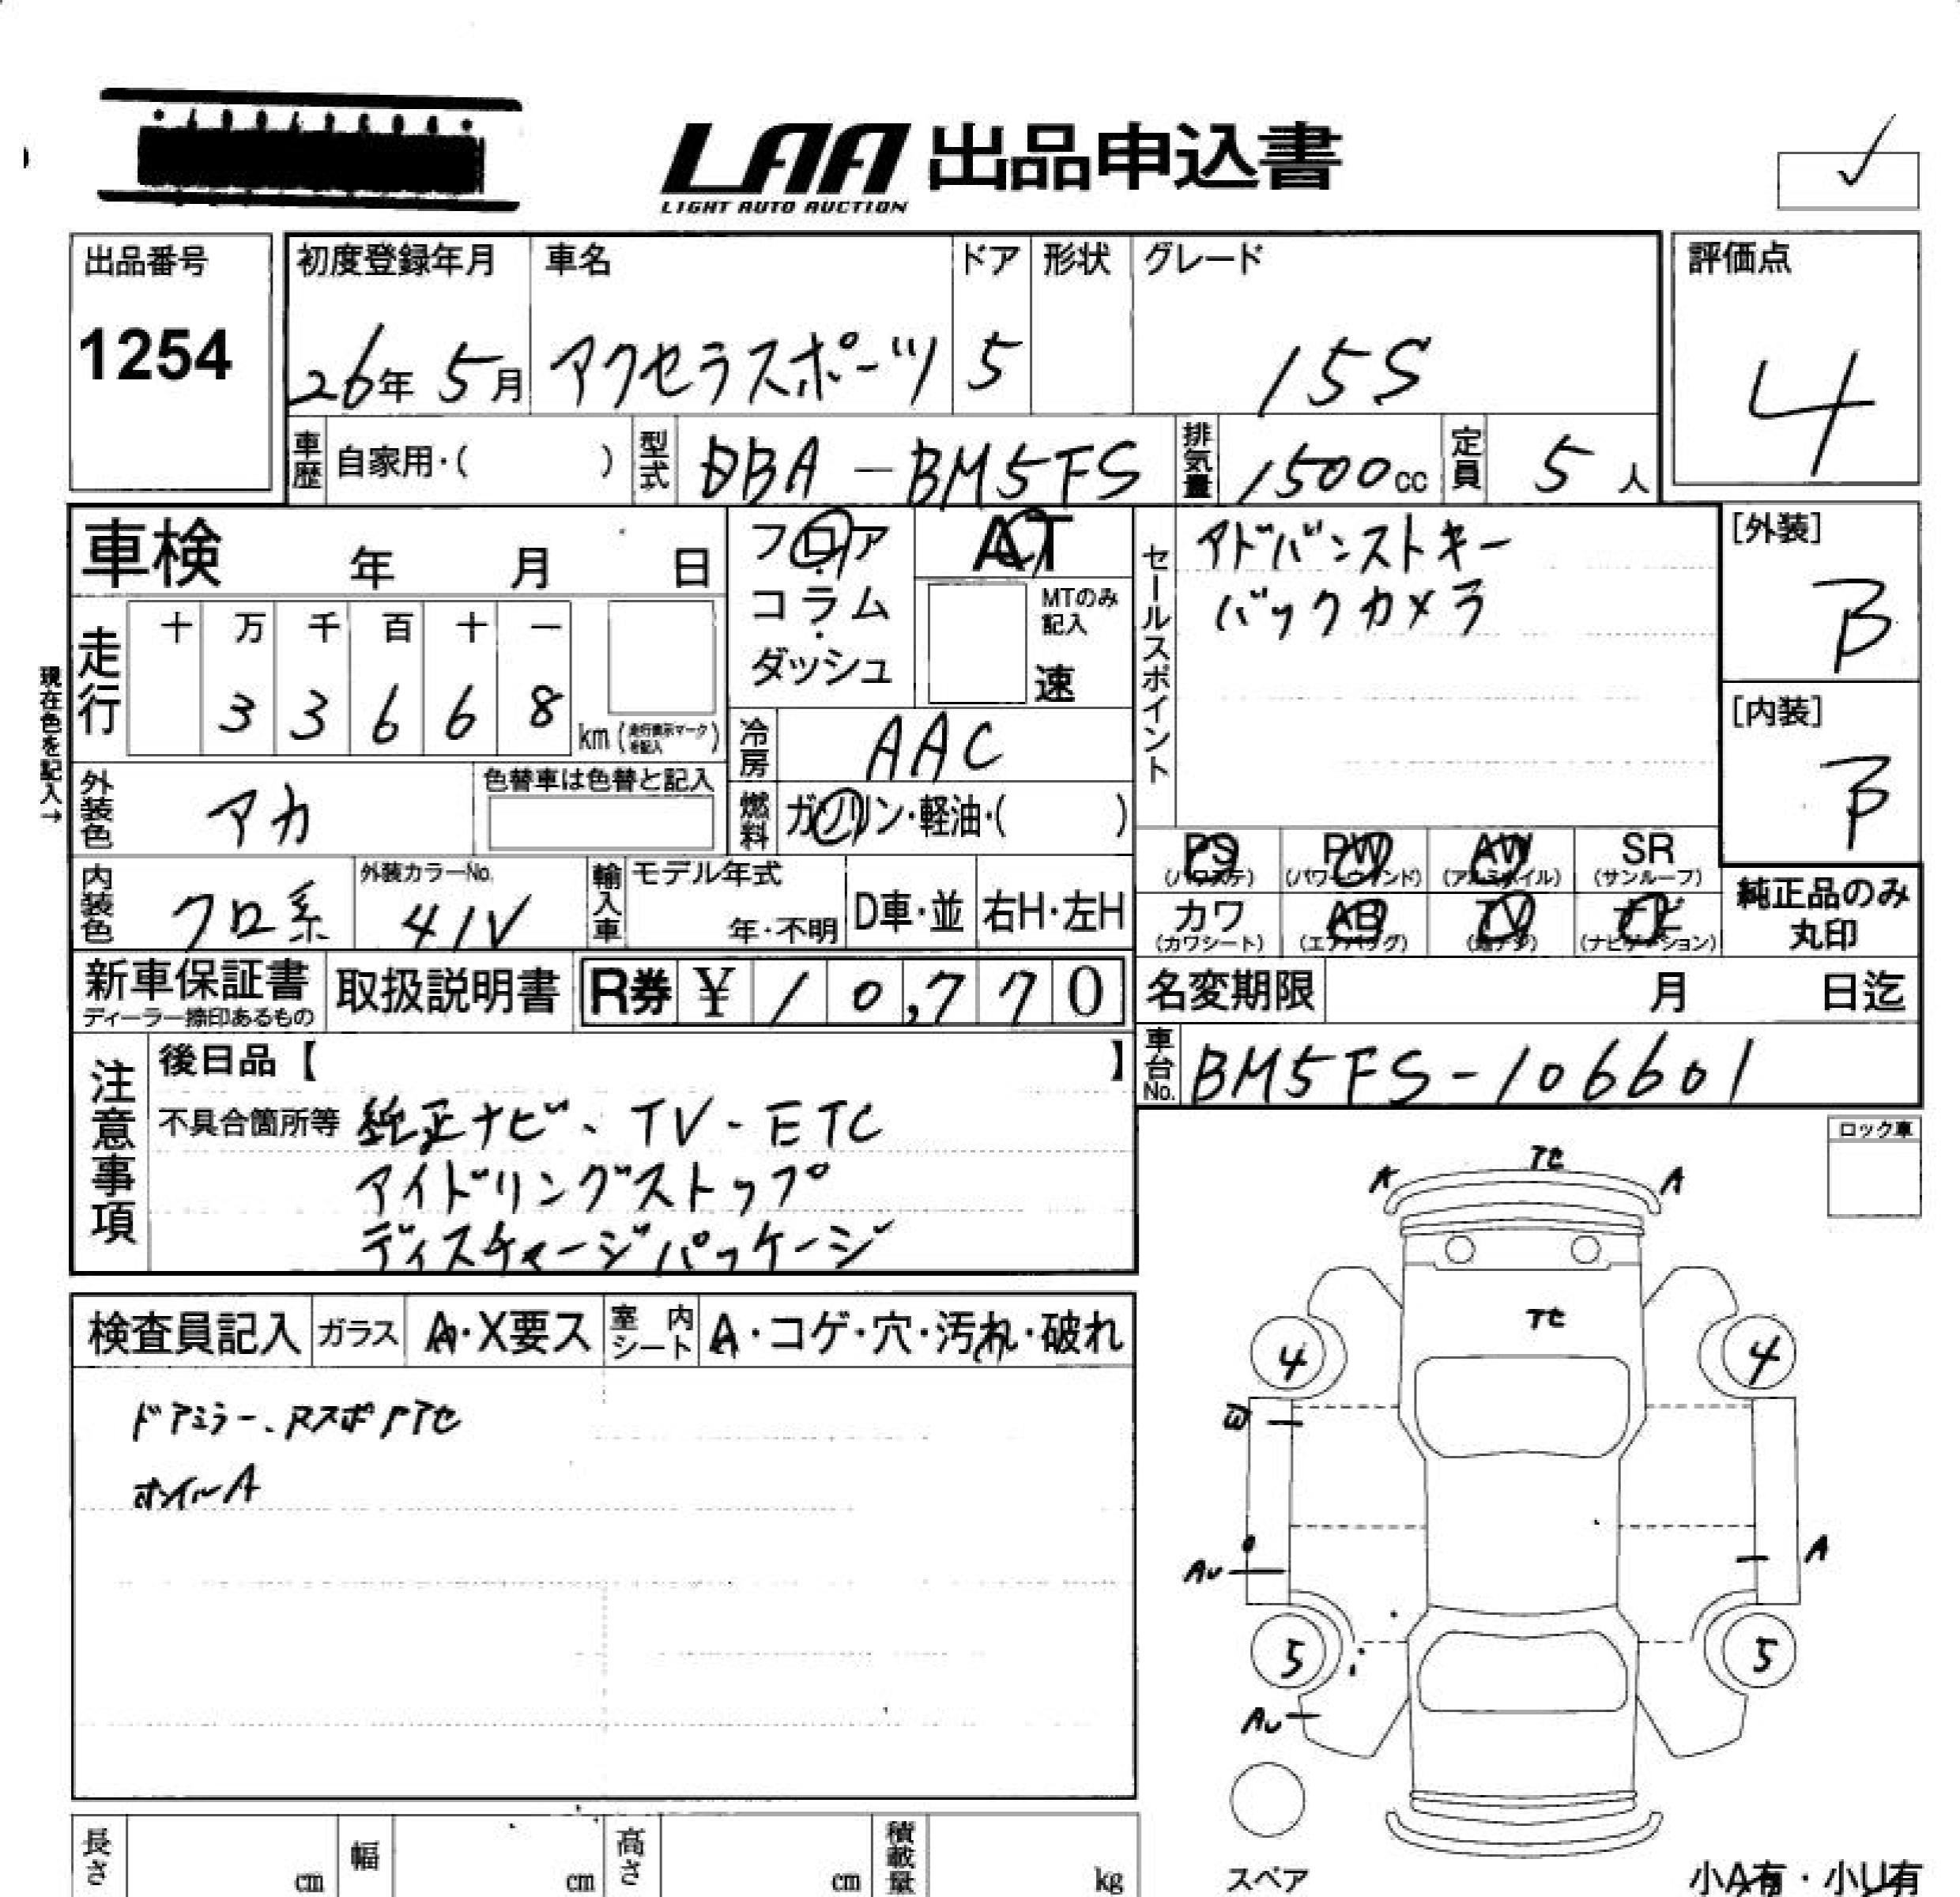 LAA 出品申込書
LIGHT AUTO AUCTION
出品番号
1254
初度登録年月
26年 5月
車名
アクセラスポーツ
ドア
5
形状
グレード
15S
評価点
4
車歴 自家用・( )
型式 DBA-BM5FS
排気量 1500cc
定員 5人
車検 年 月 日
フロア・コラム・ダッシュ
AT
MTのみ記入
速
セールスポイント
アドバンストキー
バックカメラ
[外装]
B
[内装]
B
現在色を記入→
走行
十 万 千 百 十 一
3 3 6 6 8
km (走行表示マークを記入)
冷房 AAC
外装色 アカ
色替車は色替と記入
燃料 ガソリン・軽油・( )
PS (パワステ)
PW (パワーウィンド)
AW (アルミホイル)
SR (サンルーフ)
カワ (カワシート)
AB (エアバッグ)
TV (地デジ)
ナビ (ナビゲーション)
純正品のみ
丸印
内装色 クロ系
外装カラーNo.
41V
輸入車
モデル年式
年・不明
D車・並
右H・左H
新車保証書
ディーラー捺印あるもの
取扱説明書
R券 ¥ 10,770
名変期限 月 日迄
車台No. BM5FS-106601
注意事項
後日品【 】
不具合箇所等 純正ナビ、TV-ETC
アイドリングストップ
ディスチャージパッケージ
ロック車
検査員記入
ガラス A・X要ス
室内シート A・コゲ・穴・汚れ・破れ
ドアミラー、Rスポ
ホイルA
A
A
4
4
AU
A
5
5
AU
スペア
長さ cm
幅 cm
高さ cm
積載量 kg
小A有・小U有